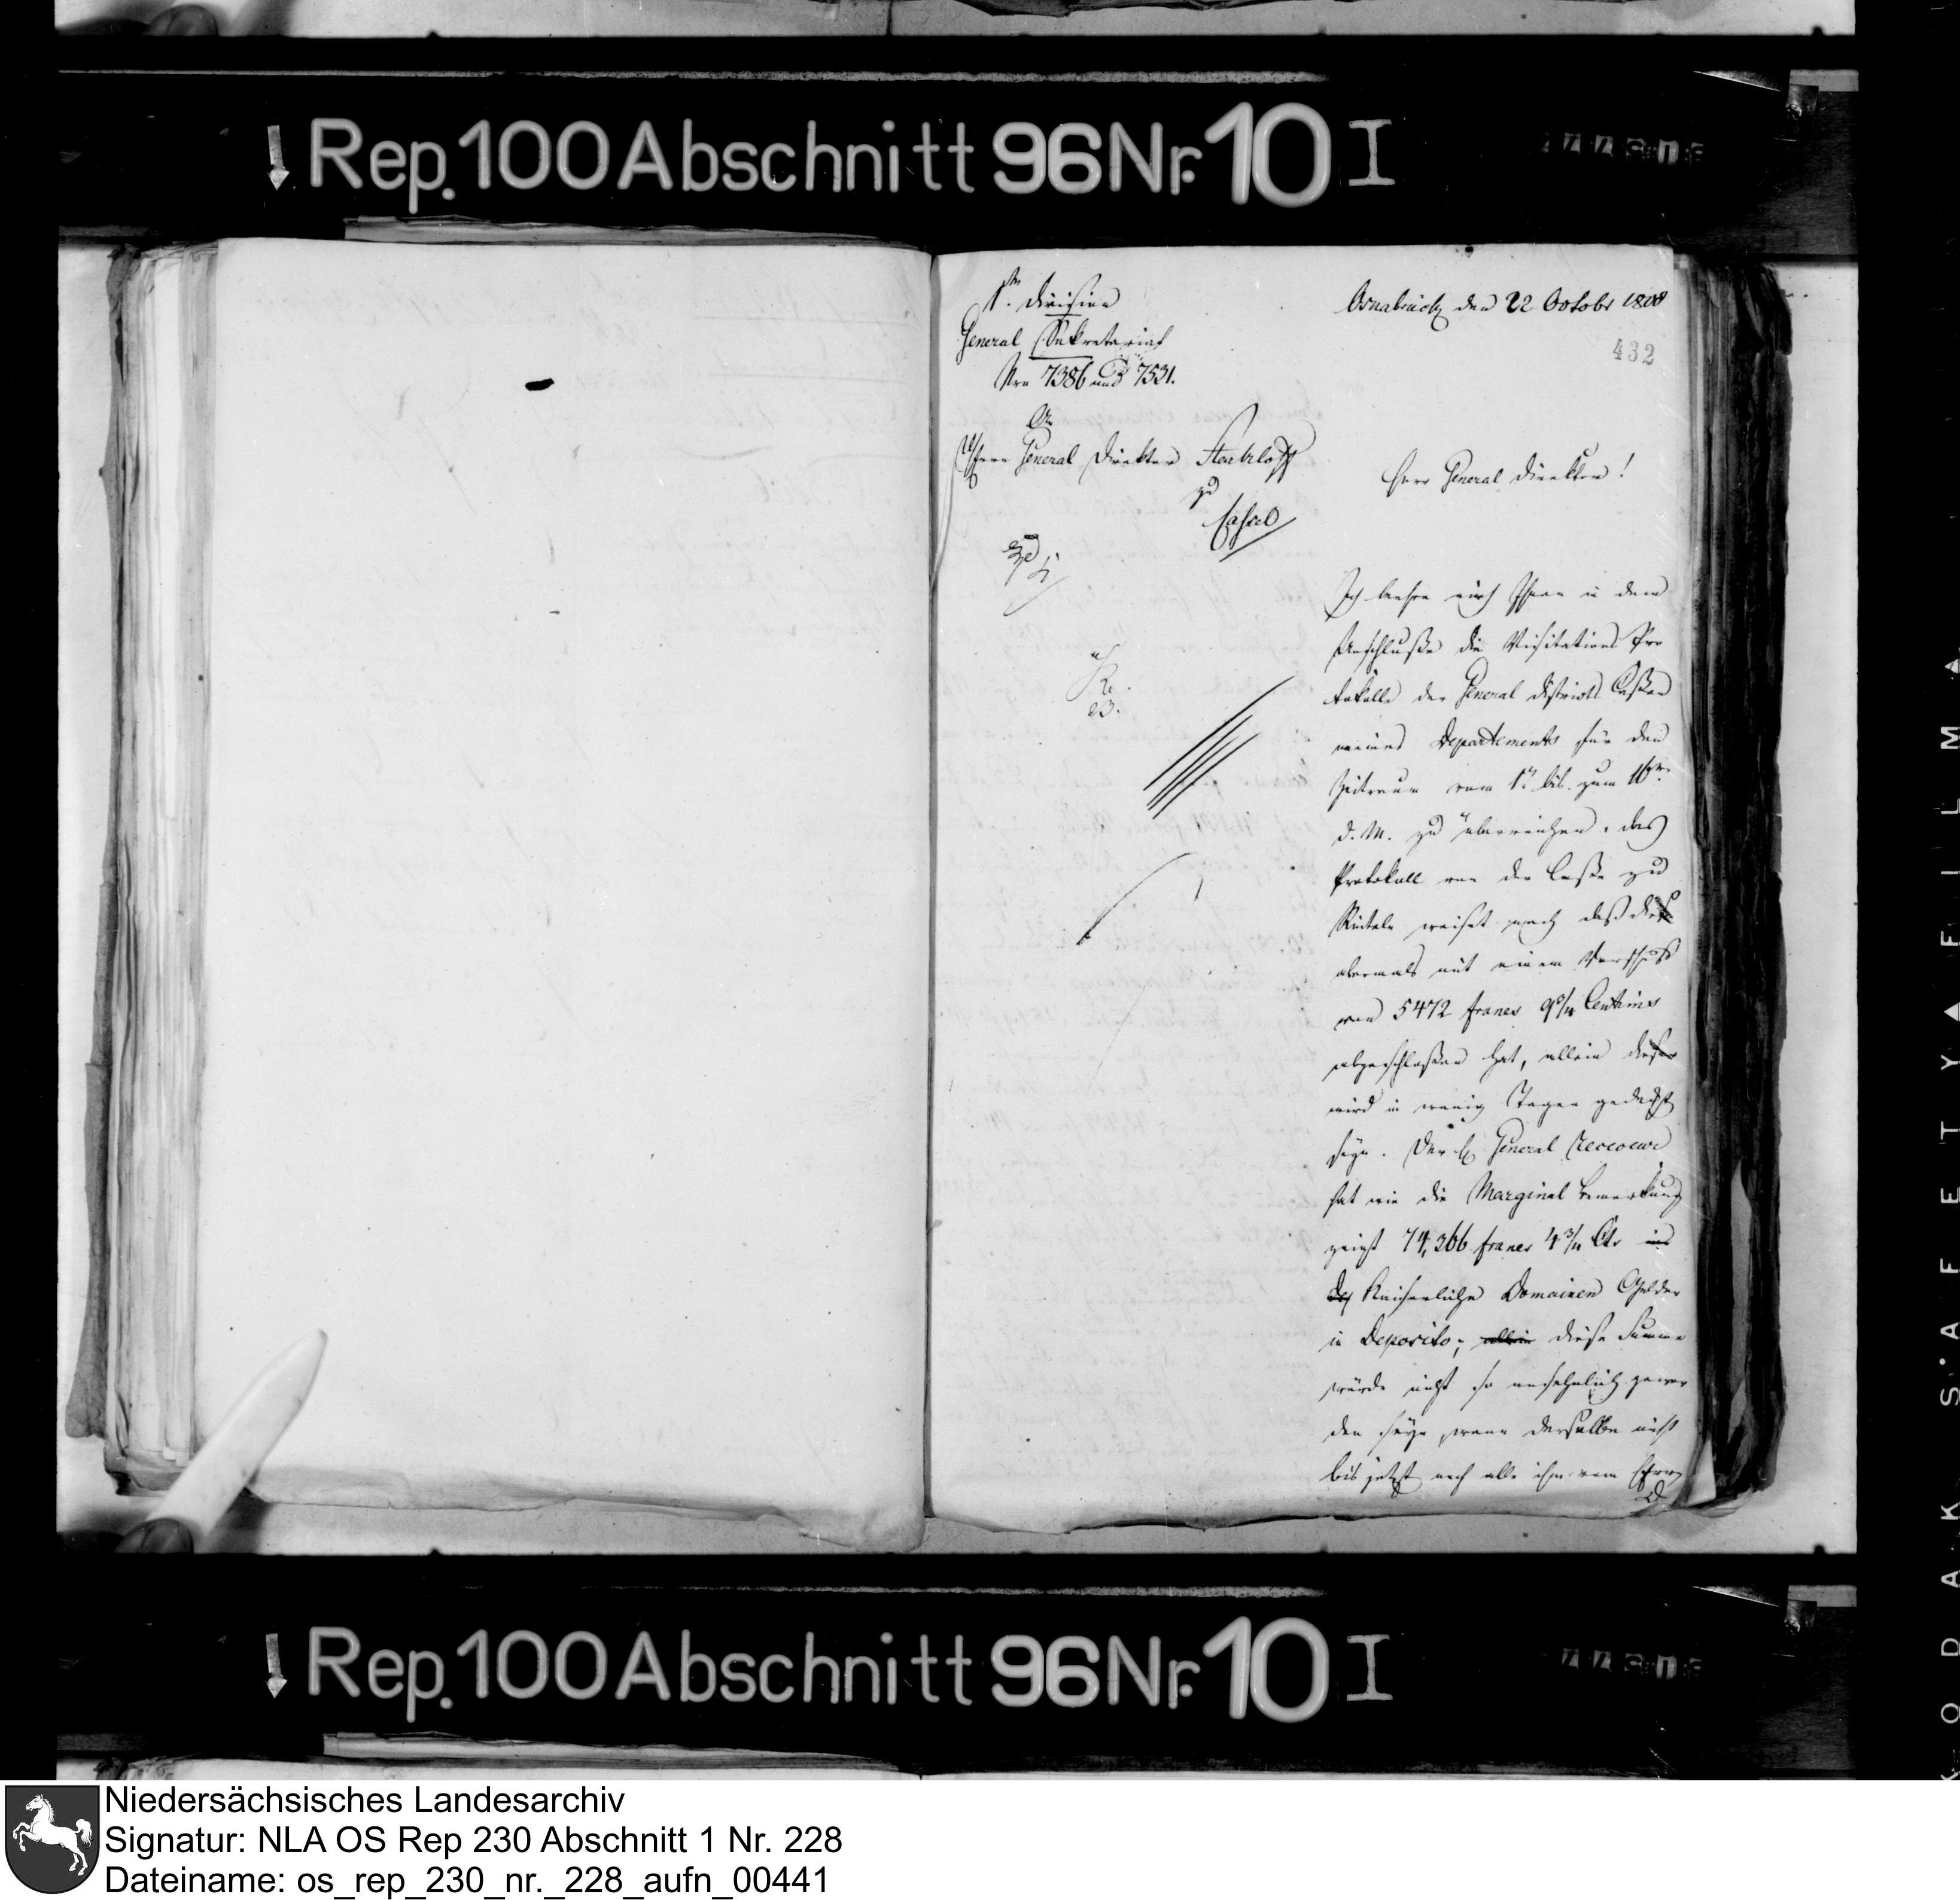 Rep. 100 Abschnitt 96 Nr. 10 I
1te Division
General Sekretariat
Nro 7386 und 7531.
An
Herrn General Direktor
zu
Cassel
Osnabrück den 22 Octobr 1808
432
Herr General Direktor!
Ich beehre mich Ihnen in dem
Anschluße die Visitations Pro
tokolle der General Districts Caßen
meines Departements für den
Zeitraum vom 1t bis zum 16ten
d. M. zu überreichen. das
Protokoll von der Caße zu
Rinteln weiset nach daß diese
abermals mit einem Vorschuß
von 5472 francs 9 3/4 Centims
abgeschloßen hat, allein dieser
wird in wenig Tagen gedeckt
seyn. Der H General Receveur
hat wie die Marginal Bemerkung
zeigt 74,366 francs 4 3/4 Cts in
Kaiserliche Domainen Gelder
in Deposito; allein diese Summe
würde nicht so ansehnlich gewor
den seyn, wenn derselbe nicht
bis jetzt noch alle ihm vom Herrn
Rep. 100 Abschnitt 96 Nr. 10 I
KODAK SAFETY FILM
Niedersächsisches Landesarchiv
Signatur: NLA OS Rep 230 Abschnitt 1 Nr. 228
Dateiname: os_rep_230_nr._228_aufn_00441